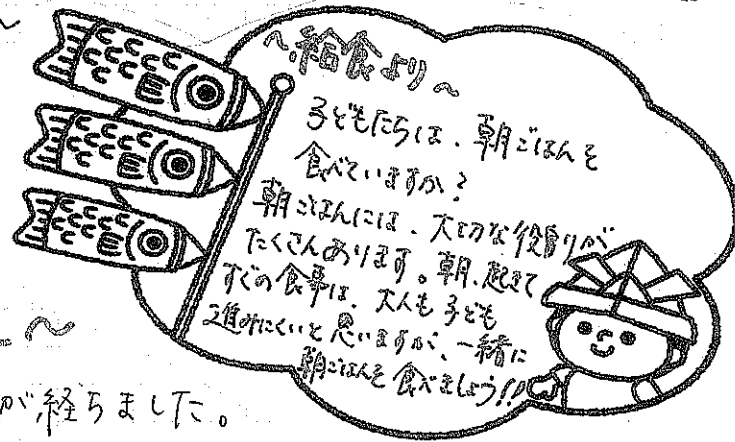 ～給食より～
子どもたちは、朝ごはんを
食べていますか？
朝ごはんには、大切な役割りが
たくさんあります。朝、起きて
すぐの食事は、大人も子どもも
進みにくいと思いますが、一緒に
朝ごはんを食べましょう!!
が経ちました。